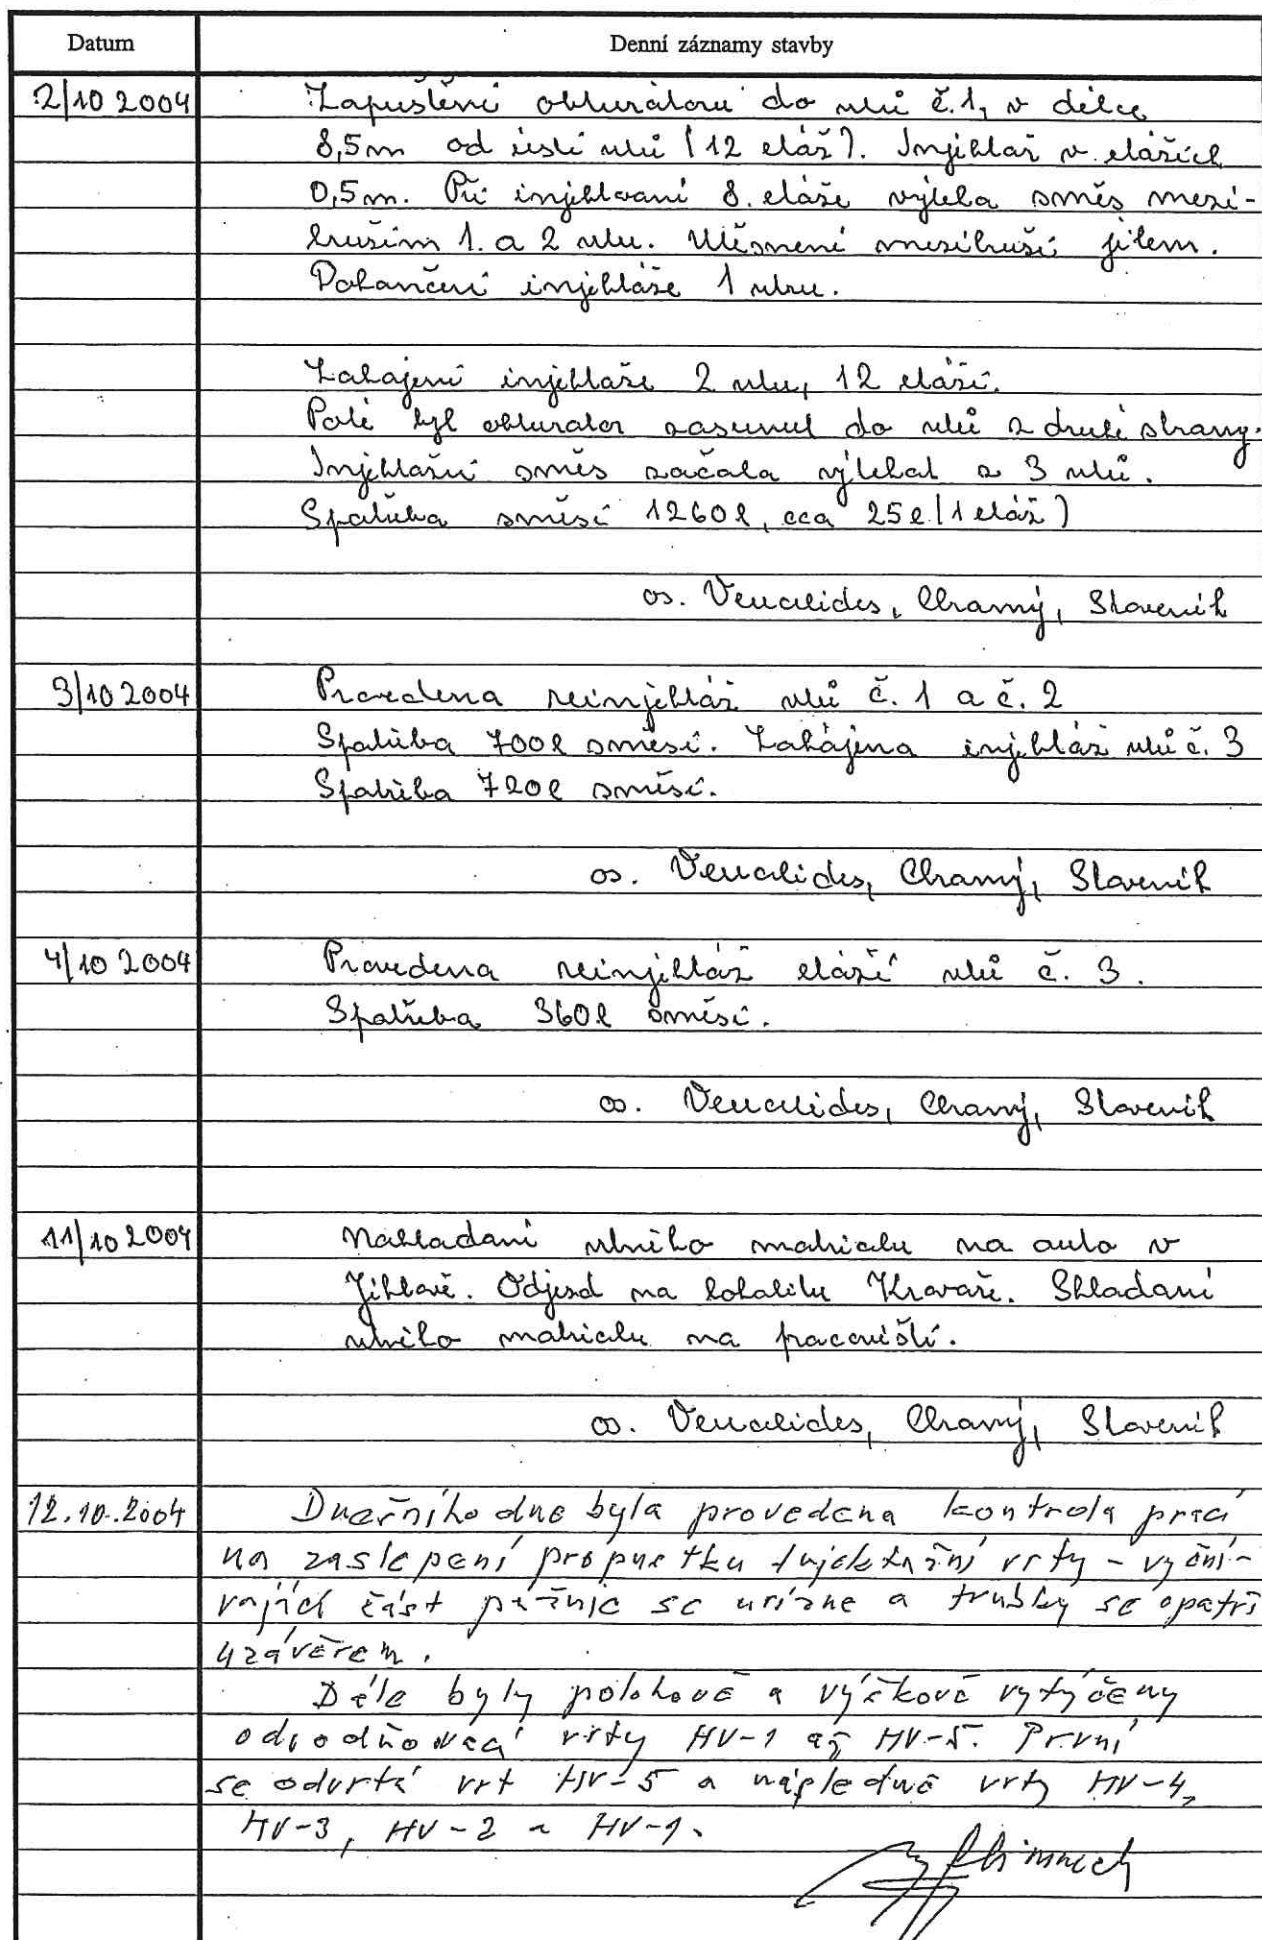 Datum
Denní záznamy stavby
2/10 2004
Zapuštění obturátoru do vrtů č. 1, v délce
8,5m od ústí vrtů (12 etáž). Injektáž v etážích
0,5m. Při injektovaní 8. etáže vytekla směs mezi-
kružím 1. a 2 vrtu. Utěsnení mezikruží jílem.
Dokončení injektáže 1 vrtu.
Zahájení injektáže 2 vrtu, 12 etáží.
Poté byl obturator zasunut do vrtů z druhé strany.
Injektažní směs začala vytékat z 3 vrtů.
Spotřeba směsi 1260l, cca 25l (1 etáž)
os. , Chramý, Slovenik
3/10 2004
Provedena reinjektáž vrtů č. 1 a č. 2
Spotřeba 700l směsi. Zahájena injektáž vrtů č. 3
Spotřeba 720l směsi.
os. , Chramý, Slovenik
4/10 2004
Provedena reinjektáž etáží vrtů č. 3.
Spotřeba 360l směsi.
os. , Chramý, Slovenik
11/10 2004
Nakladaní vrtního na auto v
Jihlavě. Odjezd na lokalitu Kravaře. Skladaní
vrtního na pracovišti.
os. , Chramý, Slovenik
12.10.2004
Dnešního dne byla provedena kontrola prací
na zaslepení propustku. Injektažní vrty – vyční-
vající část pažnic se uřízne a trubky se opatří
uzávěrem.
Dále byly polohově a výškově vytýčeny
odvodňovací vrty HV-1 až HV-5. První
se odvrtá vrt HV-5 a následně vrty HV-4,
HV-3, HV-2 a HV-1.